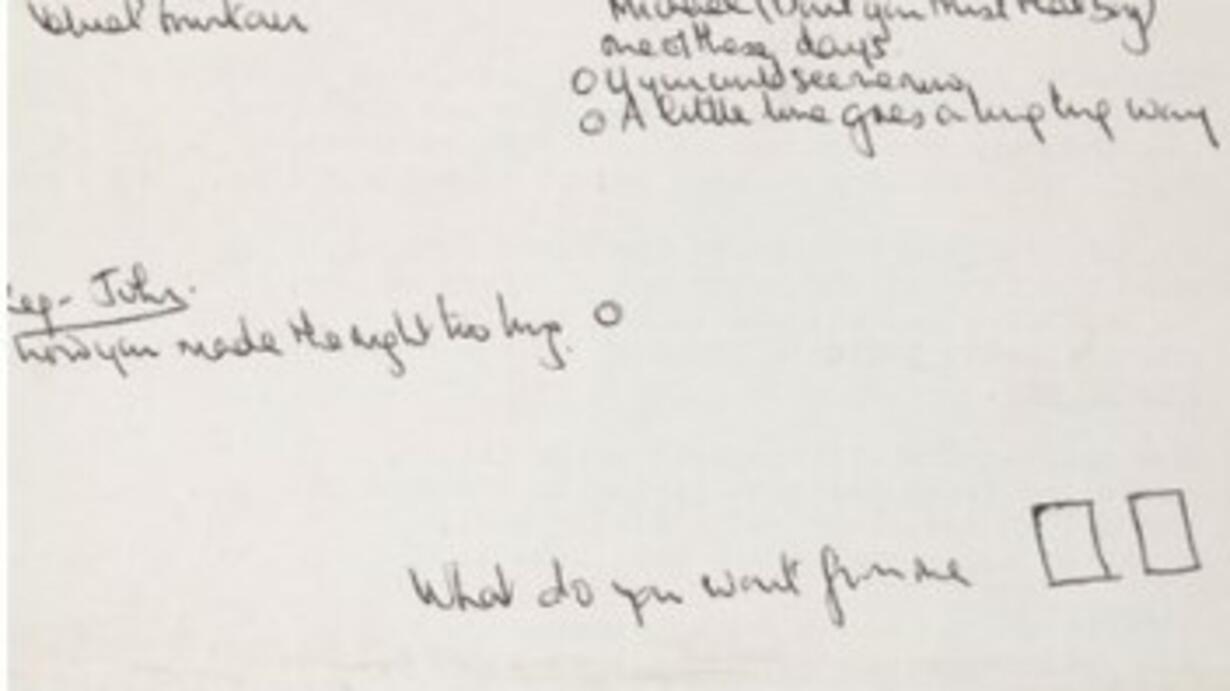 Velvet Mountain
Michael (Don't you trust that boy)
one of these days
O If you could see her now
O A little time goes a long long way
Reg - John.
how you made the night too long. O
What do you want from me